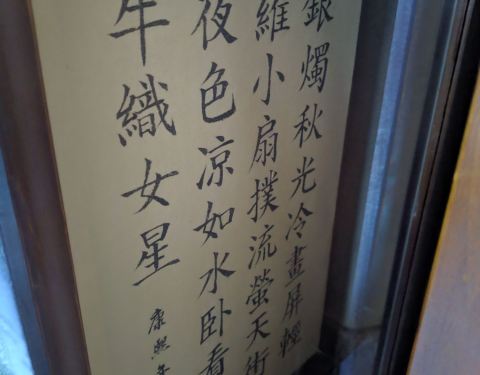 銀燭秋光冷畫屏輕
羅小扇撲流螢天街
夜色凉如水卧看
牛織女星
康熙